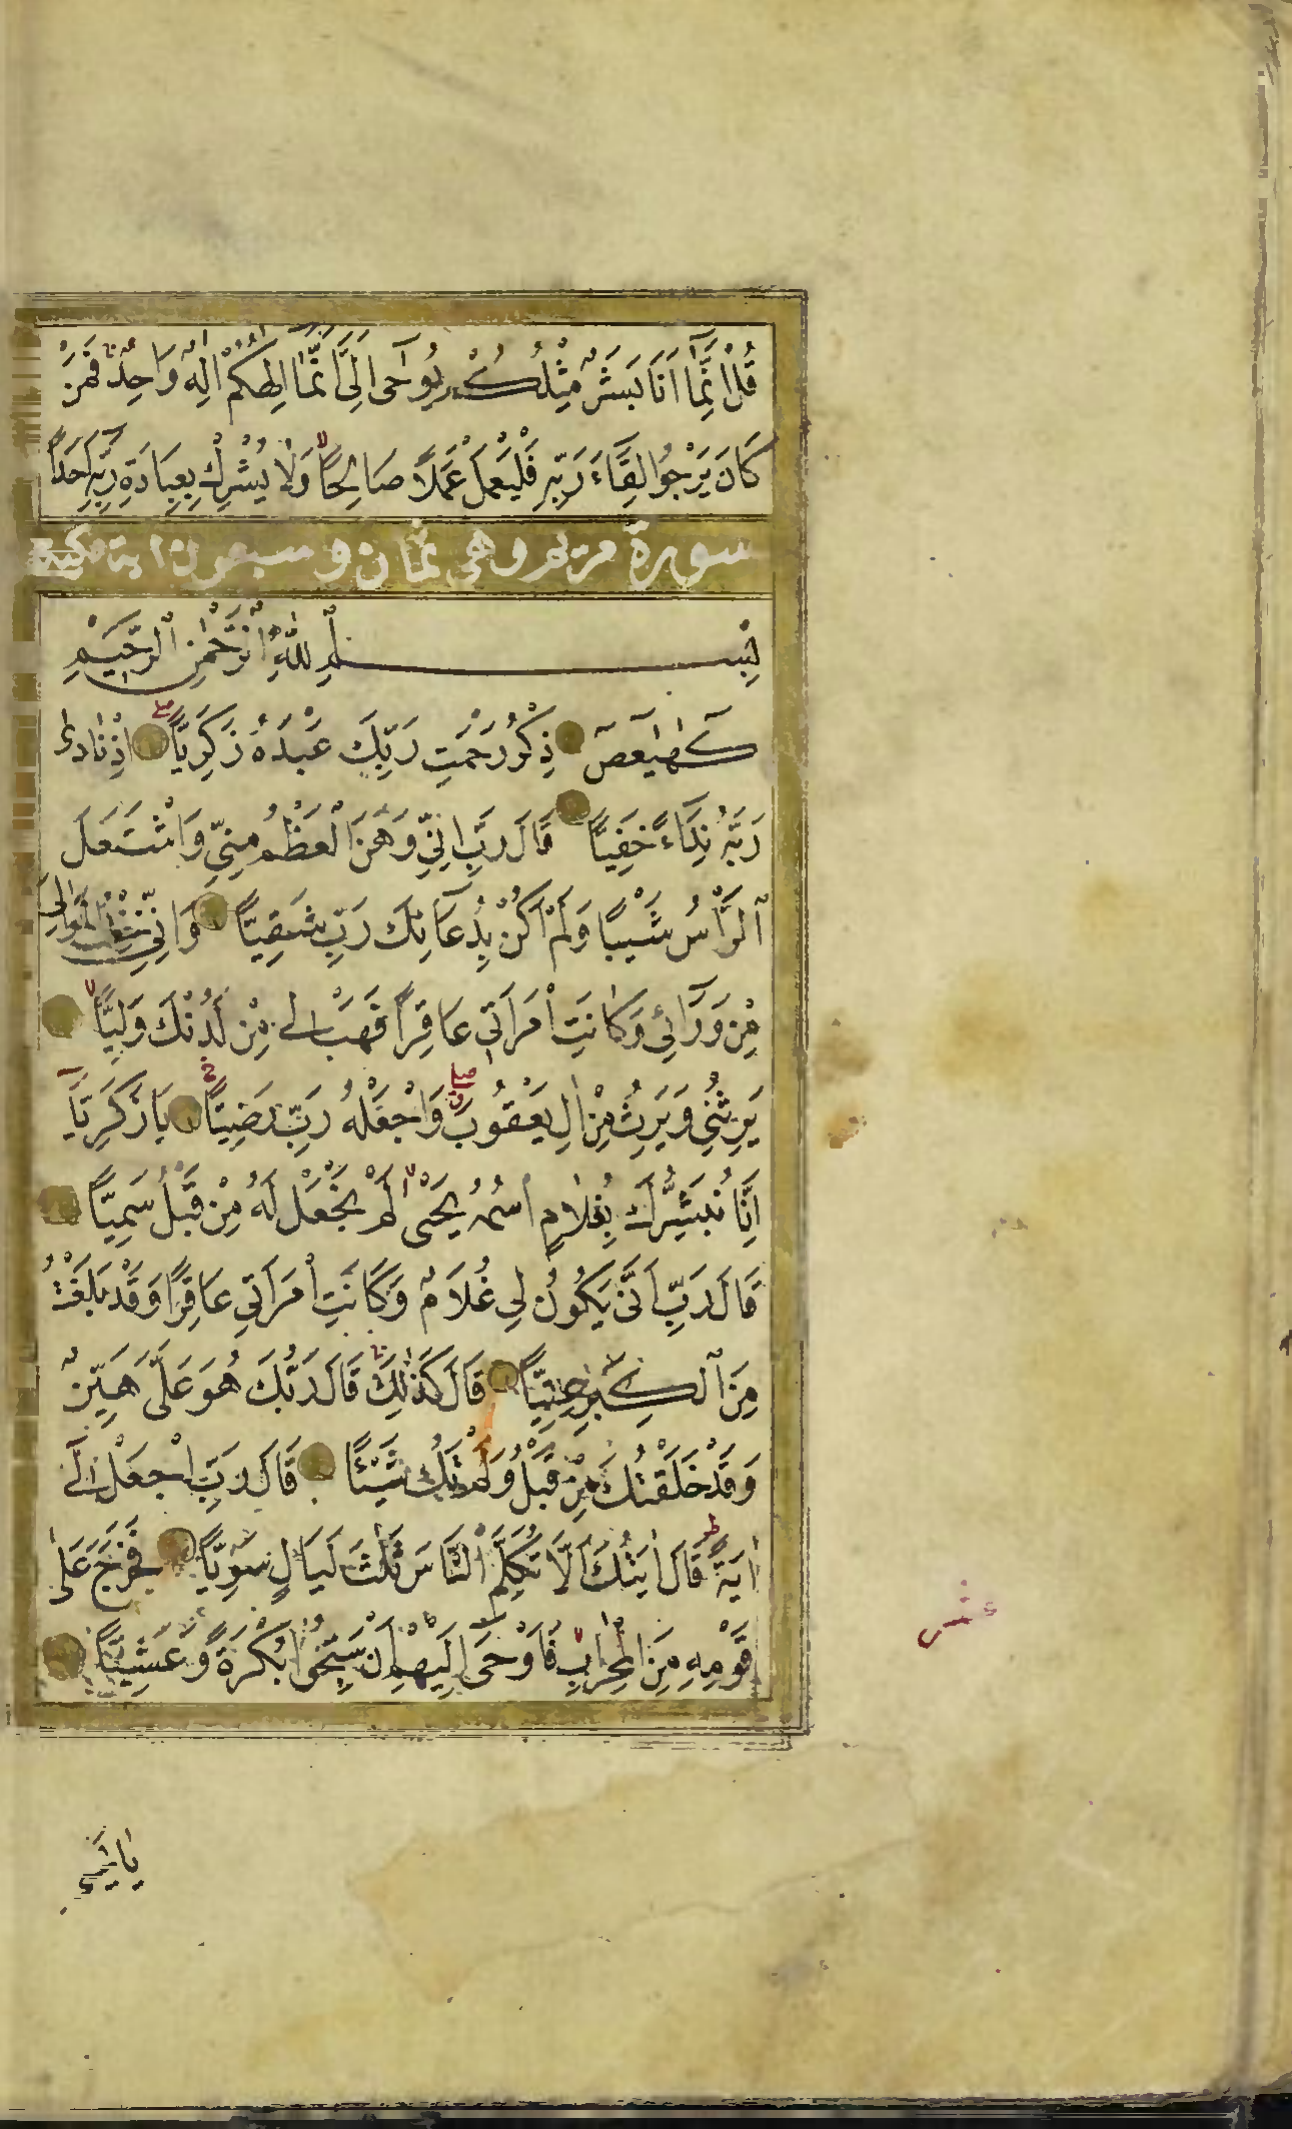 قُلْ اِنَّمَٓا اَنَا بَشَرٌ مِثْلُكُمْ يُوحٰٓى اِلَىَّ اَنَّمَٓا اِلٰهُكُمْ اِلٰهٌ وَاحِدٌ فَمَنْ
كَانَ يَرْجُوا لِقَٓاءَ رَبِّهِ فَلْيَعْمَلْ عَمَلًا صَالِحًا وَلَا يُشْرِكْ بِعِبَادَةِ رَبِّهِٓ اَحَدًا
سورة مريم وهى ثمان وسبعون اية مكية
بِسْمِ اللّٰهِ الرَّحْمٰنِ الرَّحِيمِ
كٓهٰيٰعٓصٓ ذِكْرُ رَحْمَتِ رَبِّكَ عَبْدَهُ زَكَرِيَّا اِذْ نَادٰى
رَبَّهُ نِدَٓاءً خَفِيًّا قَالَ رَبِّ اِنِّى وَهَنَ الْعَظْمُ مِنِّى وَاشْتَعَلَ
الرَّاْسُ شَيْبًا وَلَمْ اَكُنْ بِدُعَٓائِكَ رَبِّ شَقِيًّا وَاِنِّى خِفْتُ الْمَوَالِىَ
مِنْ وَرَٓائِى وَكَانَتِ امْرَاَتِى عَاقِرًا فَهَبْ لِى مِنْ لَدُنْكَ وَلِيًّا
يَرِثُنِى وَيَرِثُ مِنْ اٰلِ يَعْقُوبَ وَاجْعَلْهُ رَبِّ رَضِيًّا يَا زَكَرِيَّٓا
اِنَّا نُبَشِّرُكَ بِغُلَامٍ اسْمُهُ يَحْيٰى لَمْ نَجْعَلْ لَهُ مِنْ قَبْلُ سَمِيًّا
قَالَ رَبِّ اَنّٰى يَكُونُ لِى غُلَامٌ وَكَانَتِ امْرَاَتِى عَاقِرًا وَقَدْ بَلَغْتُ
مِنَ الْكِبَرِ عِتِيًّا قَالَ كَذٰلِكَ قَالَ رَبُّكَ هُوَ عَلَىَّ هَيِّنٌ
وَقَدْ خَلَقْتُكَ مِنْ قَبْلُ وَلَمْ تَكُ شَيْئًا قَالَ رَبِّ اجْعَلْ لِٓى
اٰيَةً قَالَ اٰيَتُكَ اَلَّا تُكَلِّمَ النَّاسَ ثَلٰثَ لَيَالٍ سَوِيًّا فَخَرَجَ عَلٰى
قَوْمِهِ مِنَ الْمِحْرَابِ فَاَوْحٰٓى اِلَيْهِمْ اَنْ سَبِّحُوا بُكْرَةً وَعَشِيًّا
عشر